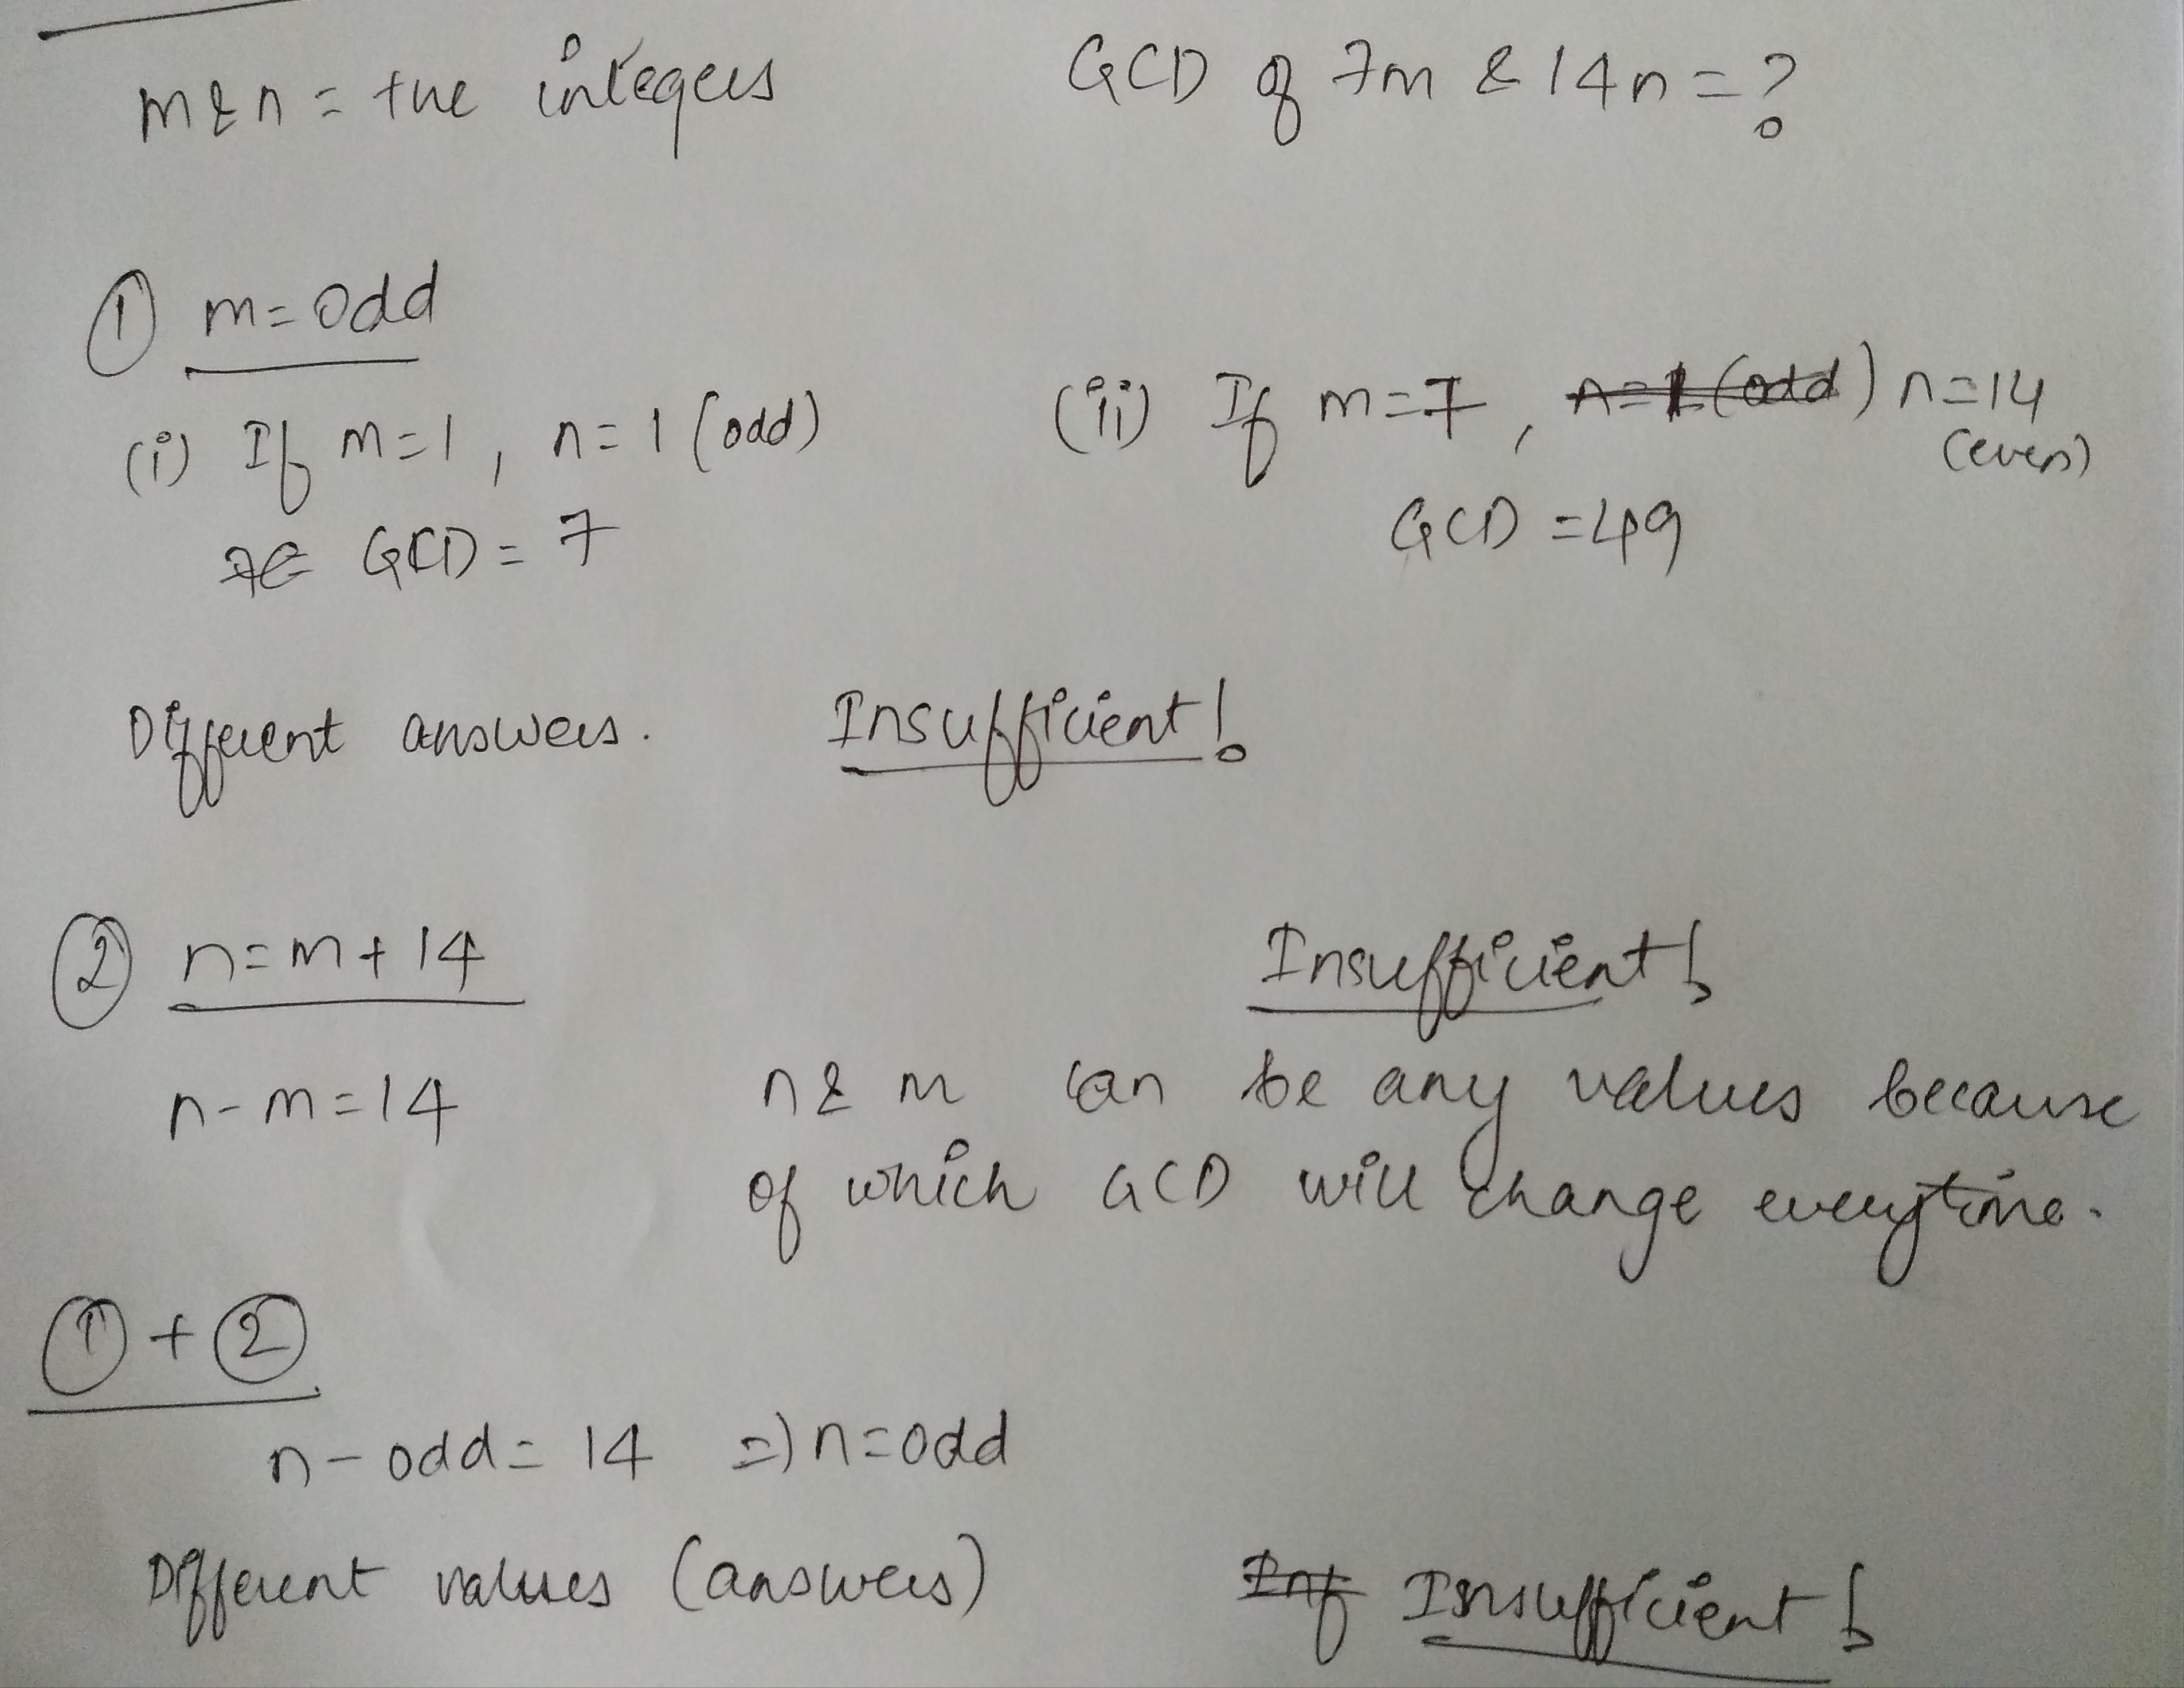 m & n = +ve integers GCD of 7m & 14n = ?
① m = odd
(i) If m=1, n=1 (odd) (ii) If m=7, n=1 (odd) n=14
(even)
GCD = 7 GCD = 49
Different answers. Insufficient!
② n=m+14 Insufficient!
n-m=14 n & m can be any values because
of which GCD will change everytime.
① + ②
n - odd = 14 => n=odd
Different values (answers) Inf Insufficient!